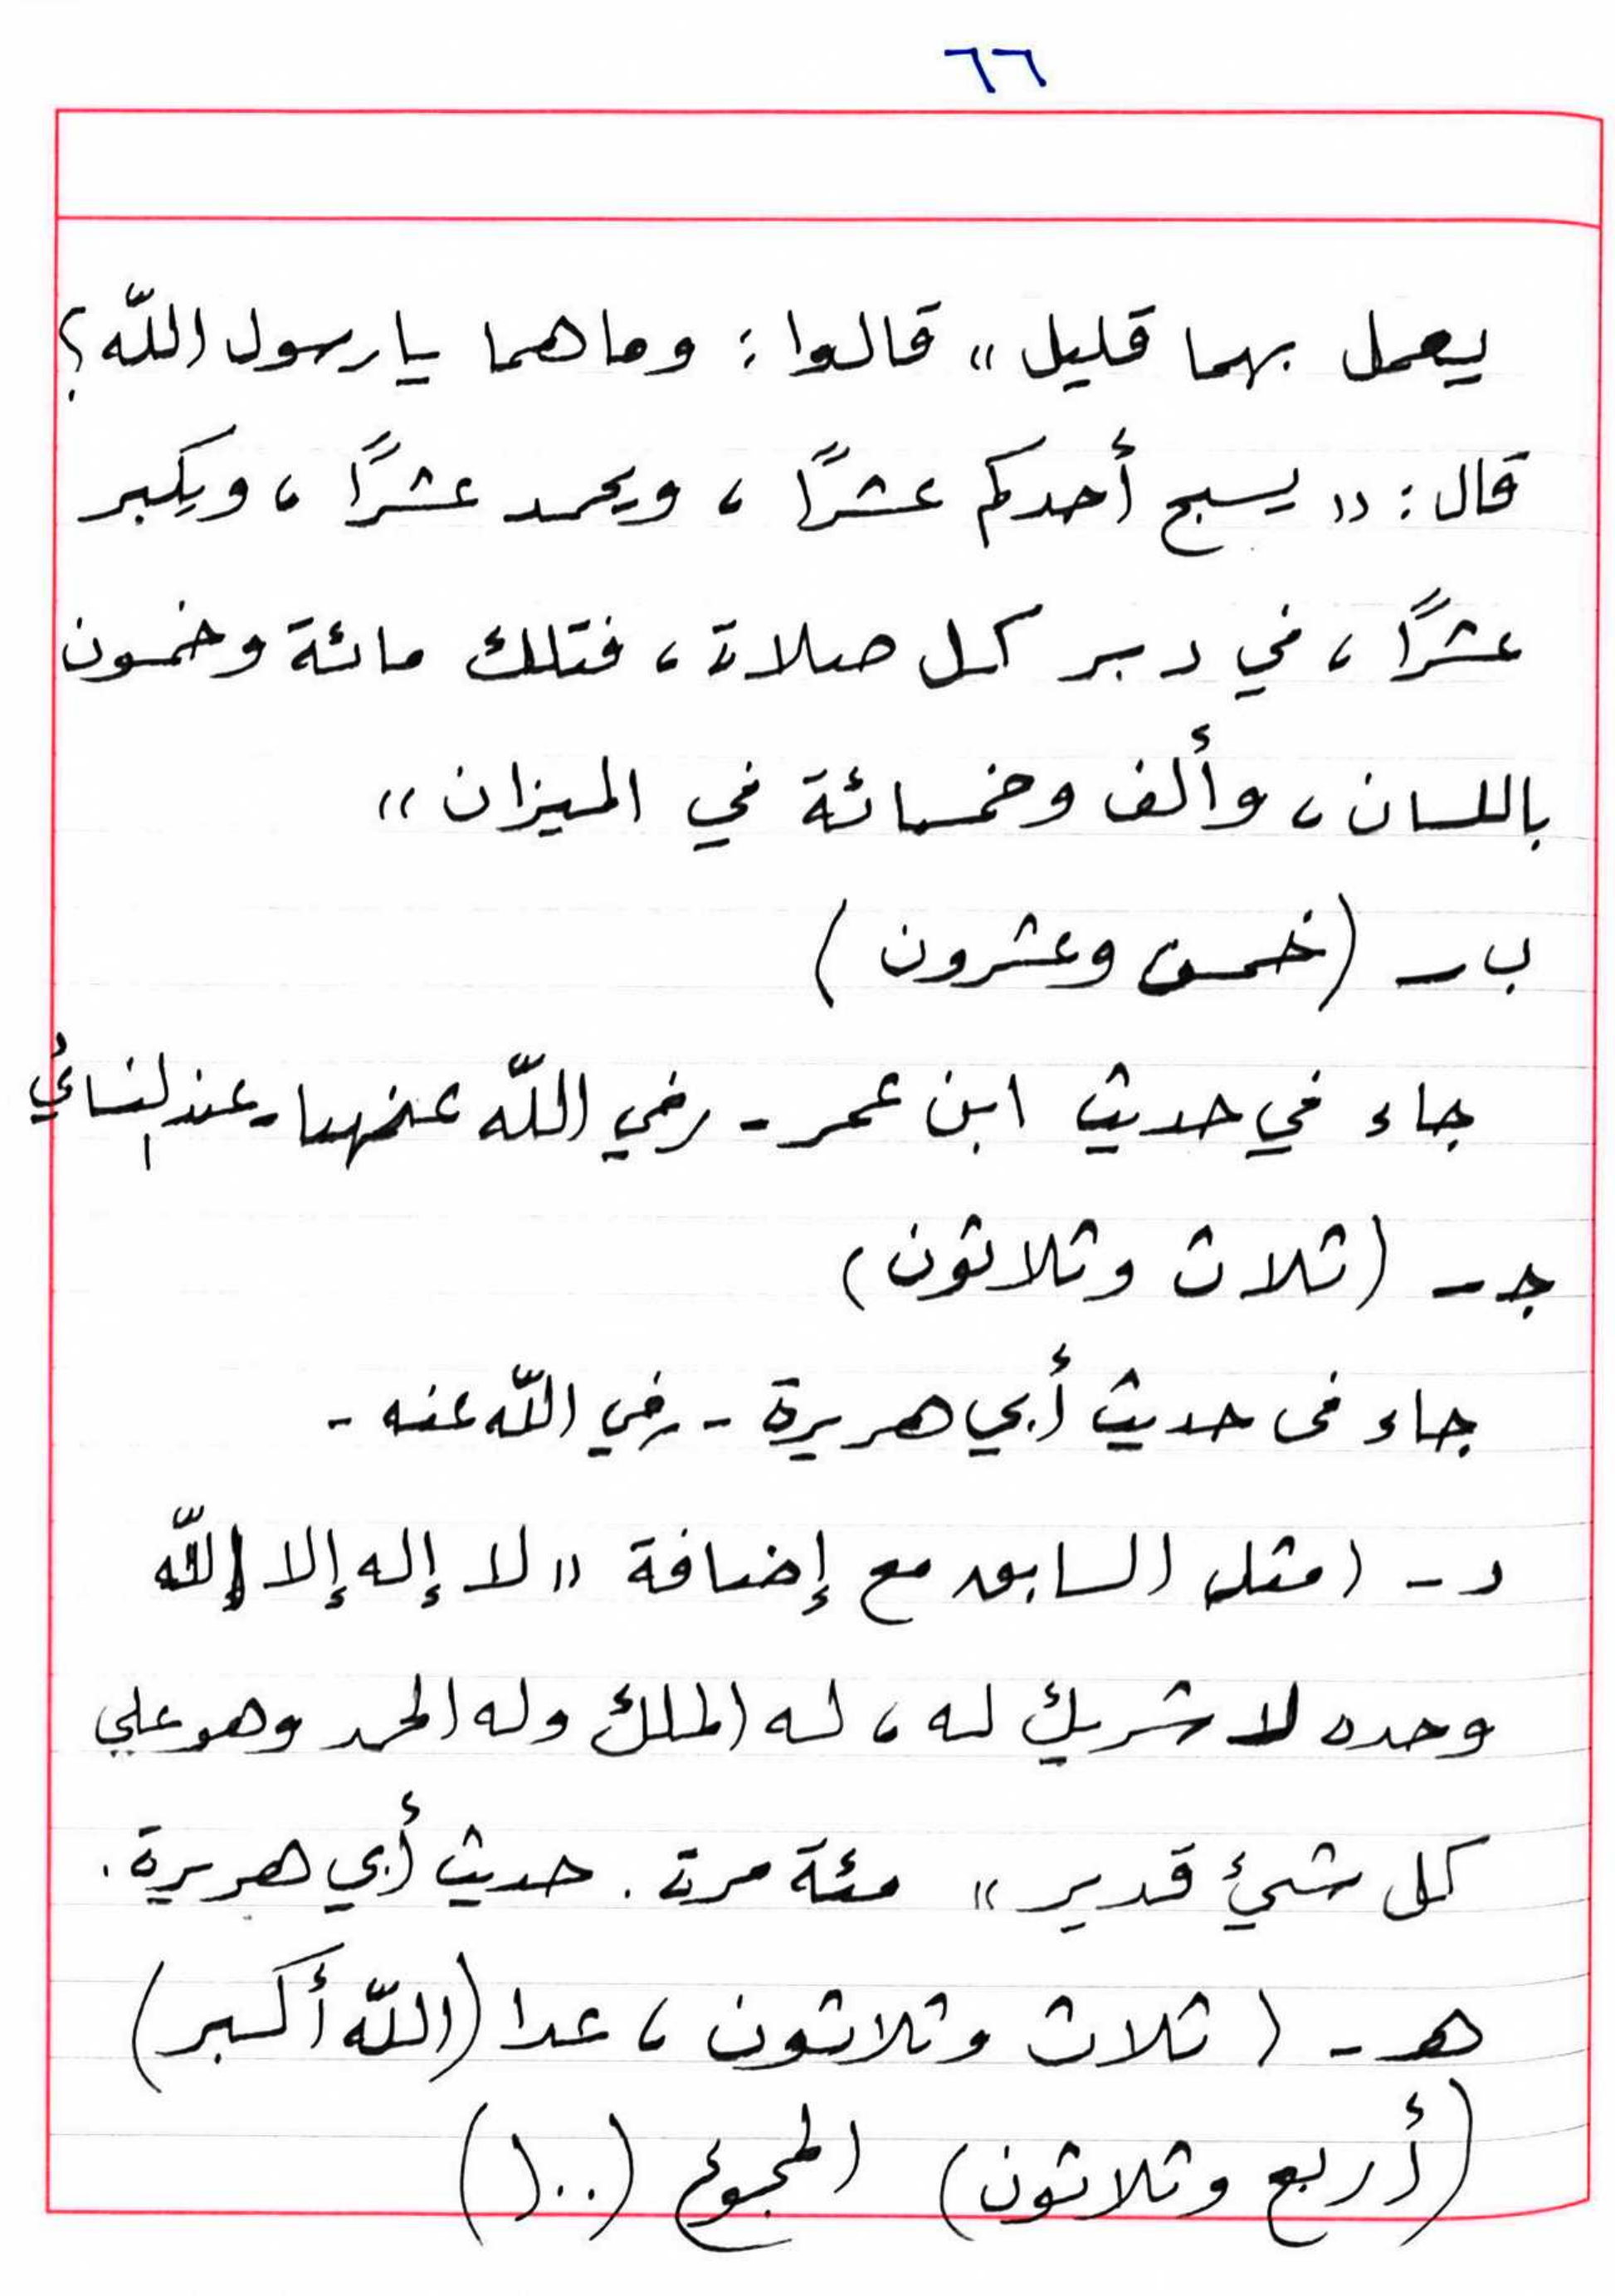 ٦٦
يعمل بهما قليل" قالوا: وما هما يا رسول اللّه؟
قال: "يسبح أحدكم عشرًا، ويحمد عشرًا، ويكبر
عشرًا، في دبر كل صلاة، فتلك مائة وخمسون
باللسان، وألف وخمسمائة في الميزان"
ب - (خمس وعشرون)
جاء في حديث ابن عمر - رضي اللّه عنهما - عند النسائي
جـ - (ثلاث وثلاثون)
جاء فى حديث أبي هريرة - رضي اللّه عنه -
د - (مثل السابق مع إضافة "لا إله إلا اللّه
وحده لا شريك له، له الملك وله الحمد وهو على
كل شيئ قدير" مئة مرة. حديث أبي هريرة.
هـ - (ثلاث وثلاثون، عدا (اللّه أكبر)
(أربع وثلاثون) المجموع (١٠٠)